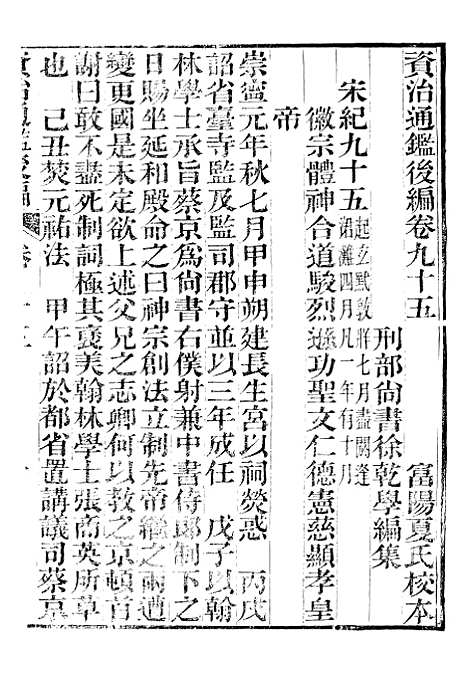 資治通鑑後編卷九十五 富陽夏氏校本
刑部尚書徐乾學編集
宋紀九十五起玄黓敦牂七月盡閼逢涒灘四月凡一年有十月
徽宗體神合道駿烈遜功聖文仁德憲慈顯孝皇
帝
崇寧元年秋七月甲申朔建長生宮以祠熒惑 丙戌
詔省臺寺監及監司郡守並以三年成任 戊子以翰
林學士承旨蔡京為尚書右僕射兼中書侍郎制下之
日賜坐延和殿命之曰神宗創法立制先帝繼之兩遭
變更國是未定欲上述父兄之志卿何以教之京頓首
謝曰敢不盡死制詞極其褒美翰林學士張商英所草
也 己丑焚元祐法 甲午詔於都省置講議司蔡京